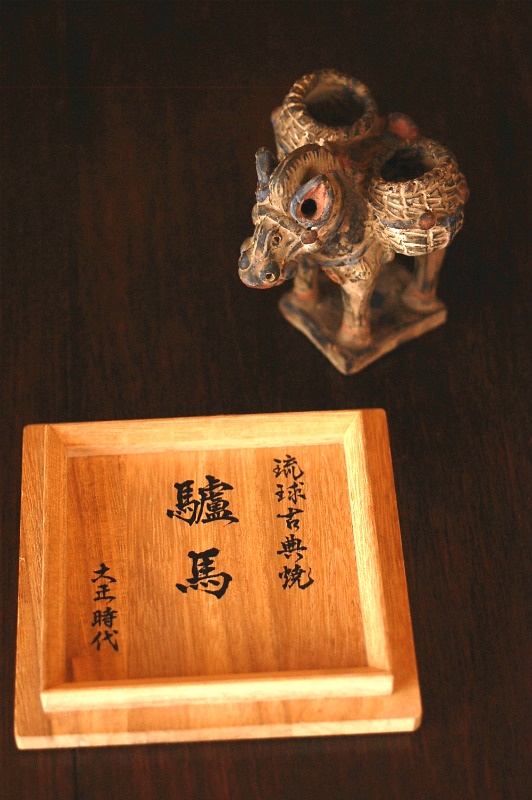 琉球古典焼
驢馬
大正時代